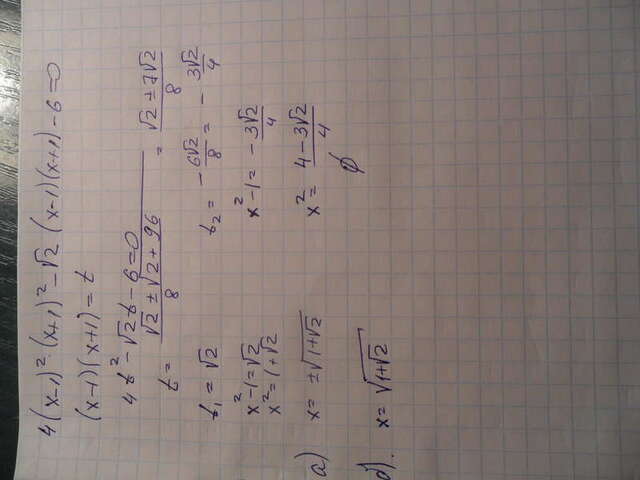 4(x-1)²·(x+1)² - √2 (x-1)(x+1) - 6 = 0
(x-1)(x+1) = t
4t² - √2t - 6 = 0
t = (√2 ± √(2 + 96))/8 = (√2 ± 7√2)/8
t₁ = √2
t₂ = -6√2/8 = -3√2/4
x² - 1 = √2
x² - 1 = -3√2/4
x² = 1 + √2
x² = (4 - 3√2)/4
а) x = ±√(1+√2)
∅
б). x = √(1+√2)